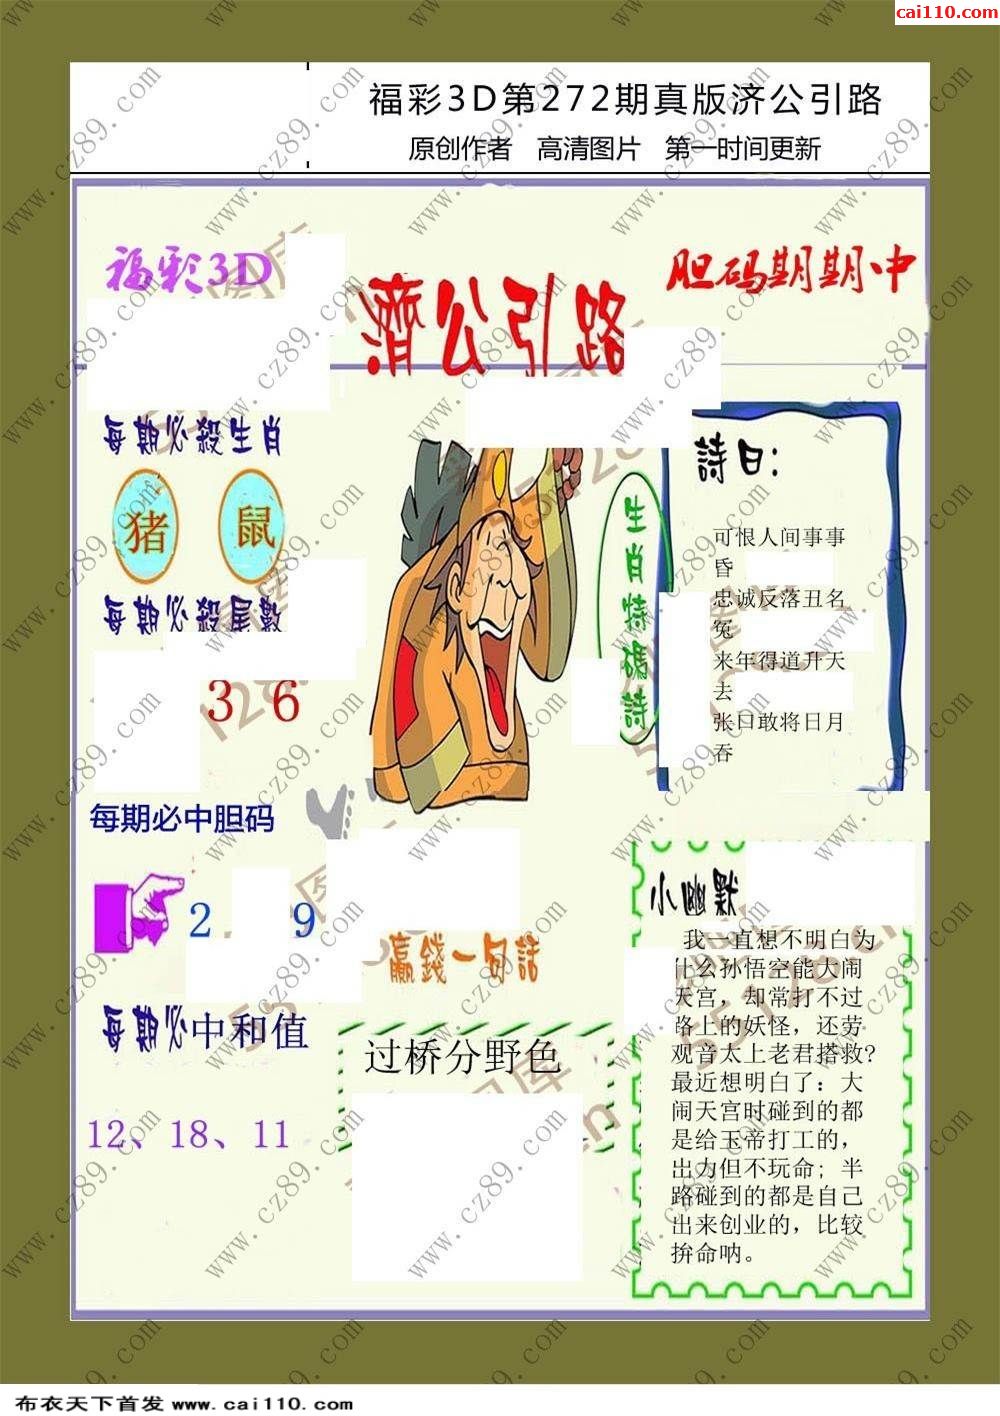 cai110.com
福彩3D第272期真版济公引路
原创作者 高清图片 第一时间更新
福彩3D
濟公引路
胆码期期中
每期必殺生肖
猪 鼠
每期必殺尾數
3 6
每期必中胆码
2 9
每期必中和值
12、18、11
生肖特碼詩
詩曰:
可恨人间事事
昏
忠诚反落丑名
冤
来年得道升天
去
张口敢将日月
吞
赢錢一句話
过桥分野色
小幽默
我一直想不明白为
什么孙悟空能大闹
天宫，却常打不过
路上的妖怪，还劳
观音太上老君搭救?
最近想明白了：大
闹天宫时碰到的都
是给玉帝打工的，
出力但不玩命；半
路碰到的都是自己
出来创业的，比较
拚命呐。
www.cz89.com
布衣天下首发 www.cai110.com